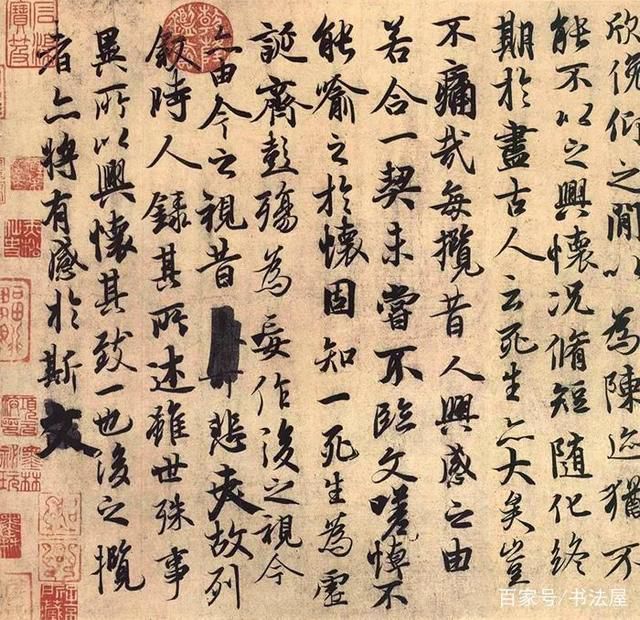 欣俛仰之閒以為陳迹猶不
能不以之興懷況脩短隨化終
期於盡古人云死生亦大矣豈
不痛哉每攬昔人興感之由
若合一契未嘗不臨文嗟悼不
能喻之於懷固知一死生為虛
誕齊彭殤為妄作後之視今
亦由今之視昔悲夫故列
叙時人錄其所述雖世殊事
異所以興懷其致一也後之攬
者亦將有感於斯文
百家号/书法屋